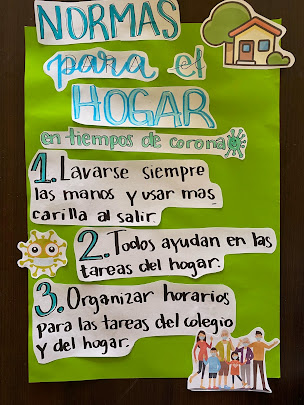 NORMAS
para el
HOGAR
en tiempos de corona
1. Lavarse siempre
las manos y usar mas
carilla al salir.
2. Todos ayudan en las
tareas del hogar.
3. Organizar horarios
para las tareas del colegio
y del hogar.